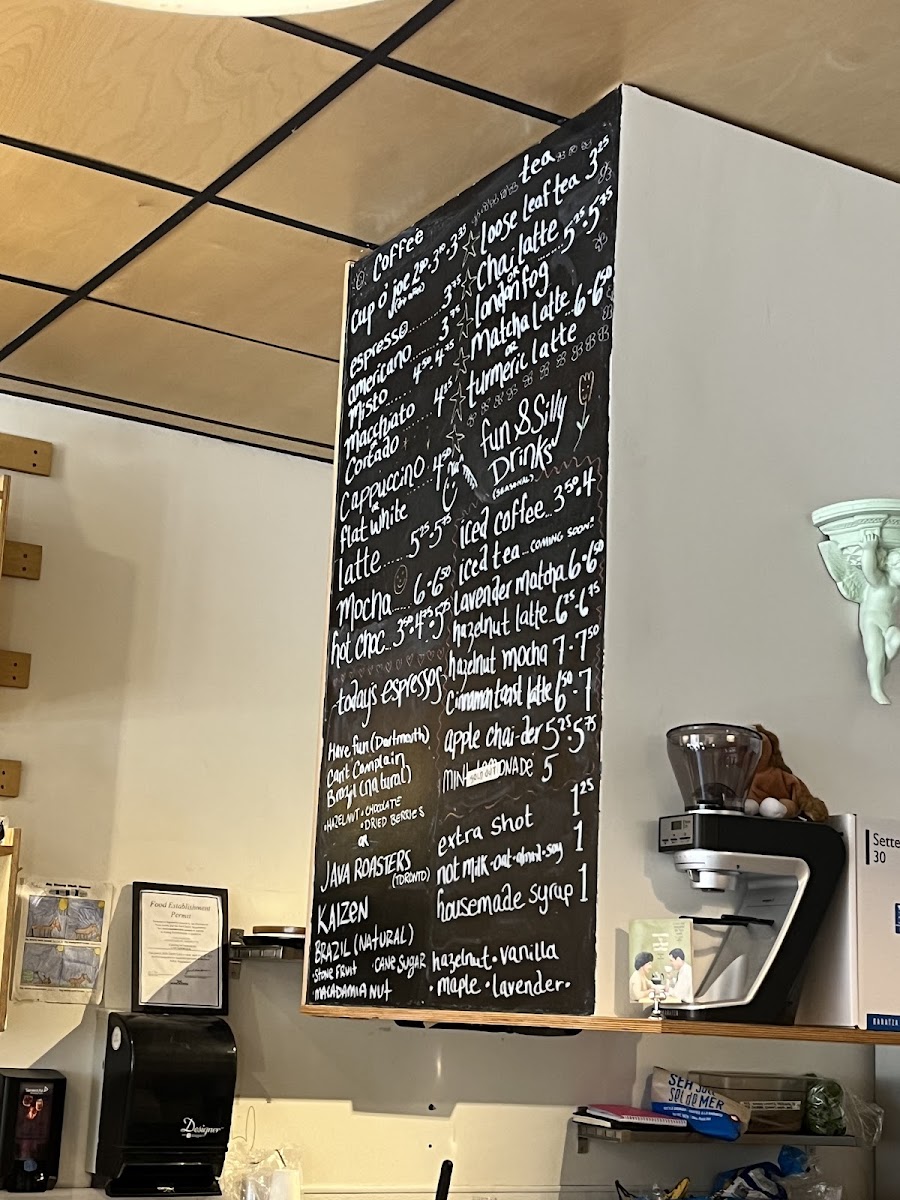 Coffee
cup o' joe 2.80 . 3.10 . 3.35
espresso........3.25
americano.......3.75
Misto.....4.50 . 4.75
Macchiato
or
Cortado
4.25
Cappuccino 4.50
or
flat white
latte.....5.25 . 5.75
mocha.....6 . 6.50
hot choc...3.50 . 4.75 . 5.75
today's espressos
Have fun (Dartmouth)
Can't Complain
Brazil (natural)
• HAZELNUT • CHOCOLATE
• DRIED BERRIES
OR
JAVA ROASTERS
(TORONTO)
KAIZEN
BRAZIL (NATURAL)
• STONE FRUIT • CANE SUGAR
• MACADAMIA NUT
tea
loose leaf tea 3.25
Chai latte
or
london fog
5.25 . 5.75
Matcha latte...6 . 6.50
or
turmeric latte
fun & Silly
Drinks
(SEASONAL)
iced coffee...3.50 . 4
iced tea...COMING SOON"
lavender matcha 6 . 6.50
hazelnut latte..6.25 . 6.75
hazelnut mocha 7 . 7.50
cinnamon toast latte 6.50 . 7
apple chai-der 5.25 . 5.75
MINT LEMONADE 5
SOLD OUT
extra shot 1.25
not milk • oat • almond • soy 1
housemade syrup 1
hazelnut • vanilla
• maple • lavender •
Food Establishment
Permit
Designer
Sette
30
BARATZA
SEA SALT
SEL de MER